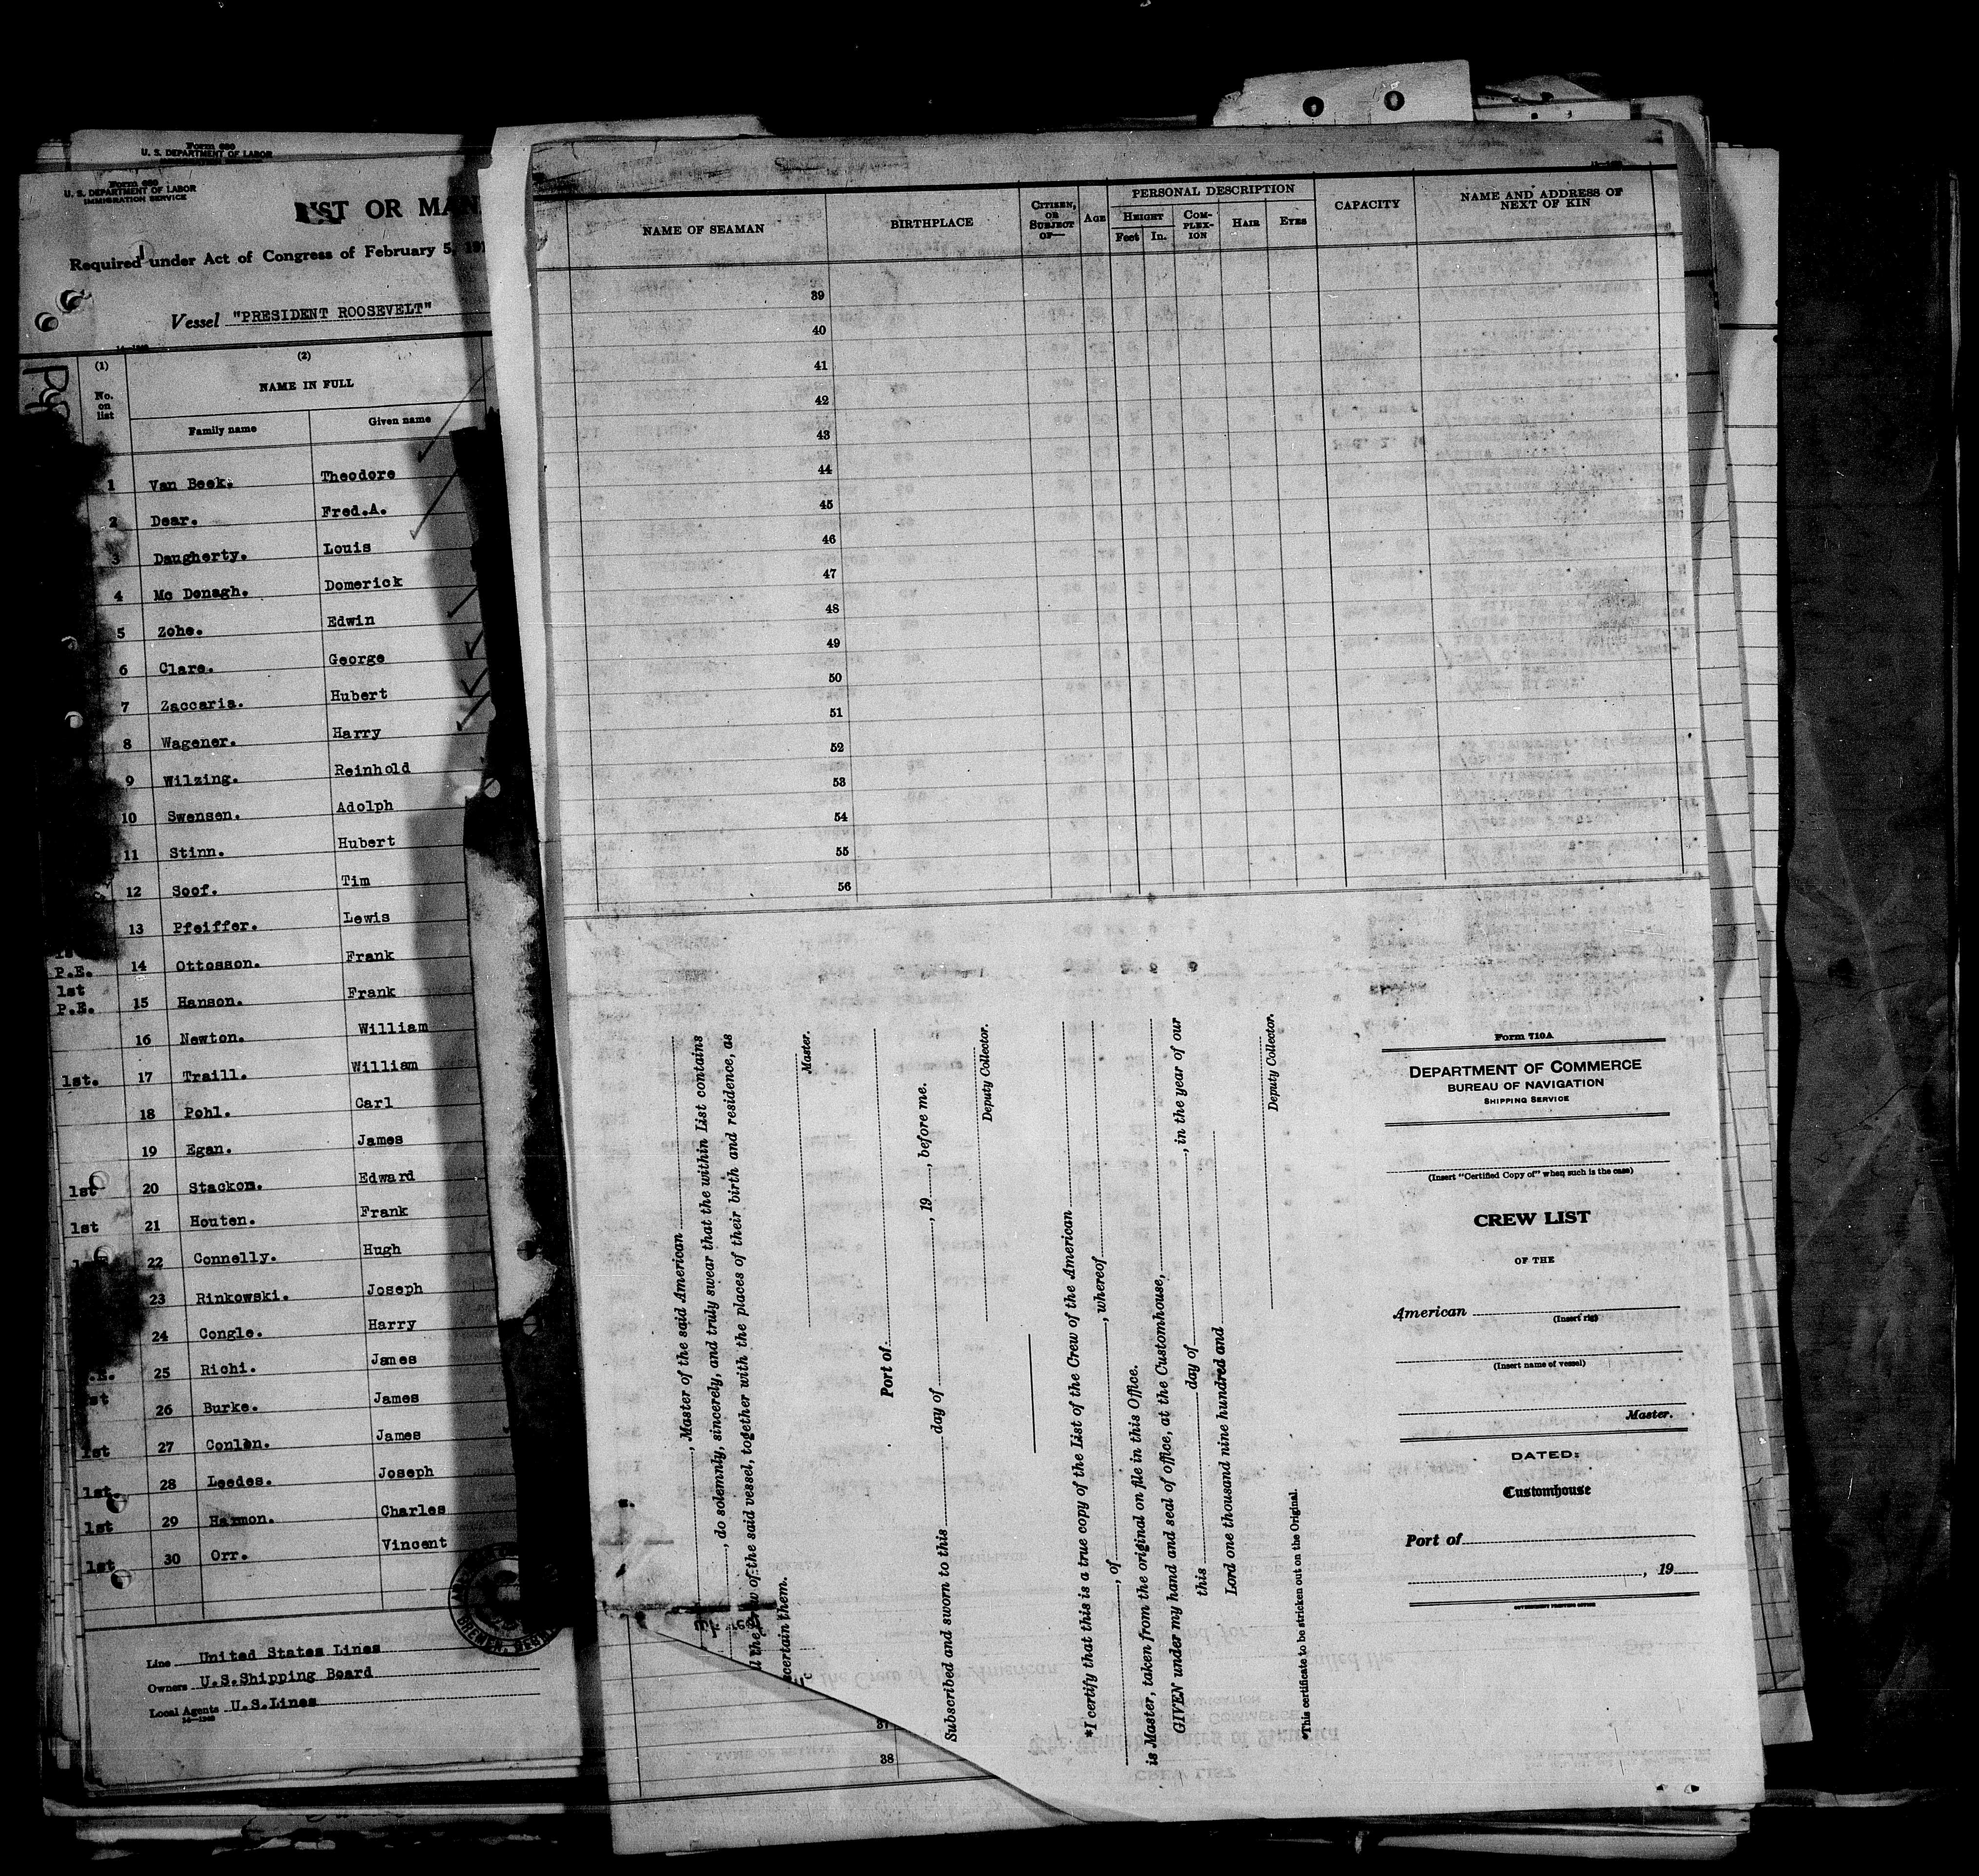 Form 680
U. S. DEPARTMENT OF LABOR
Form 680
U. S. DEPARTMENT OF LABOR
IMMIGRATION SERVICE
LIST OR MAN
Required under Act of Congress of February 5, 191
Vessel "PRESIDENT ROOSEVELT"
(1) (2)
No. on list
NAME IN FULL
Family name Given name
1 Van Beek. Theodore
2 Dear. Fred.A.
3 Daugherty. Louis
4 Mc Donagh. Domerick
5 Zohe. Edwin
6 Clare. George
7 Zaccaria. Hubert
8 Wagener. Harry
9 Wilzing. Reinhold
10 Swensen. Adolph
11 Stinn. Hubert
12 Soof. Tim
13 Pfeiffer. Lewis
P.E. 14 Ottosson. Frank
1st P.E. 15 Hanson. Frank
16 Newton. William
1st. 17 Traill. William
18 Pohl. Carl
19 Egan. James
1st 20 Stackon. Edward
1st 21 Houten. Frank
22 Connelly. Hugh
23 Rinkowski. Joseph
24 Congle. Harry
25 Richi. James
26 Burke. James
1st 27 Conlon. James
1st. 28 Leedes. Joseph
1st 29 Harmon. Charles
1st 30 Orr. Vincent
Line United States Lines
Owners U.S.Shipping Board
Local Agents U.S.Lines
NAME OF SEAMAN BIRTHPLACE CITIZEN, OR SUBJECT OF— AGE PERSONAL DESCRIPTION CAPACITY NAME AND ADDRESS OF NEXT OF KIN
HEIGHT COM-PLEX-ION HAIR EYES
Feet In.
39
40
41
42
43
44
45
46
47
48
49
50
51
52
53
54
55
56
37
38
, Master of the said American
, do solemnly, sincerely, and truly swear that the within List contains
l the Crew of the said vessel, together with the places of their birth and residence, as
scertain them.
Master.
Port of
Subscribed and sworn to this day of , 19 , before me.
Deputy Collector.
*I certify that this is a true copy of the List of the Crew of the American
, of , whereof
is Master, taken from the original on file in this Office.
GIVEN under my hand and seal of office, at the Customhouse,
this day of , in the year of our
Lord one thousand nine hundred and
Deputy Collector.
*This certificate to be stricken out on the Original.
Form 710A
DEPARTMENT OF COMMERCE
BUREAU OF NAVIGATION
SHIPPING SERVICE
(Insert "Certified Copy of" when such is the case)
CREW LIST
OF THE
American
(Insert rig)
(Insert name of vessel)
Master.
DATED:
Customhouse
Port of
, 19
GOVERNMENT PRINTING OFFICE